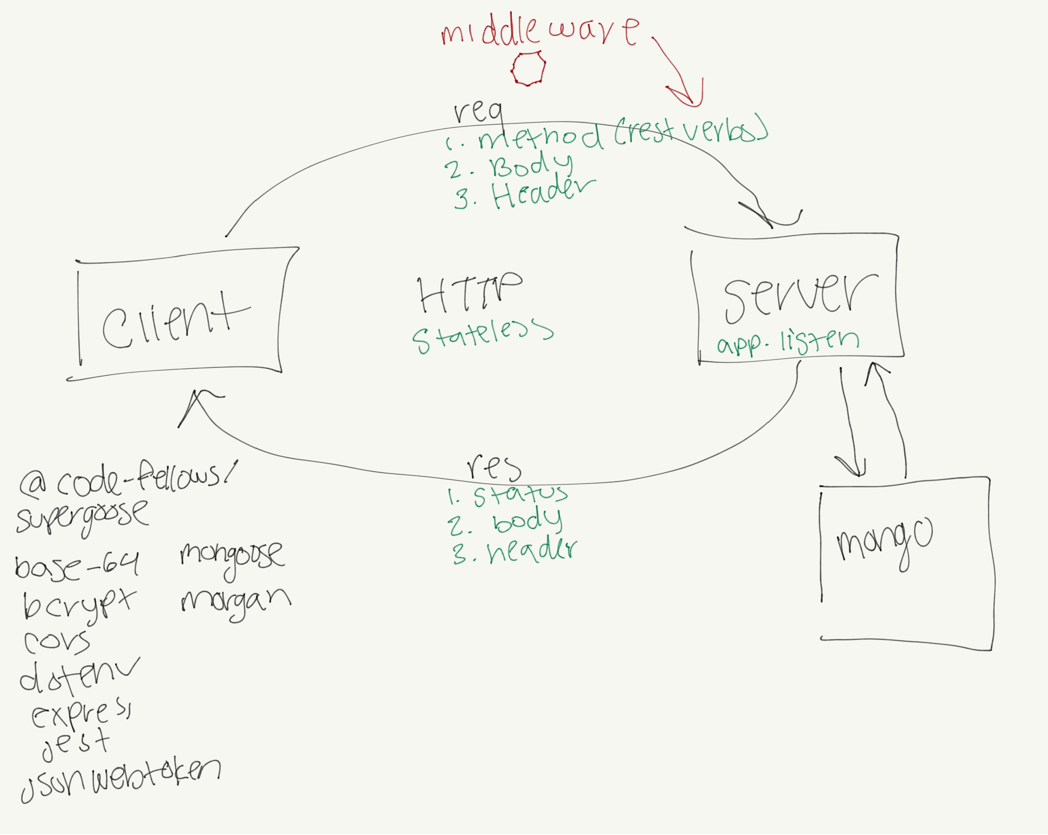 middleware
req
1. method (rest verbs)
2. Body
3. Header
client
HTTP
stateless
server
app.listen
res
1. status
2. body
3. header
mongo
@code-fellows/
supergoose
base-64 mongoose
bcrypt morgan
cors
dotenv
express
jest
jsonwebtoken